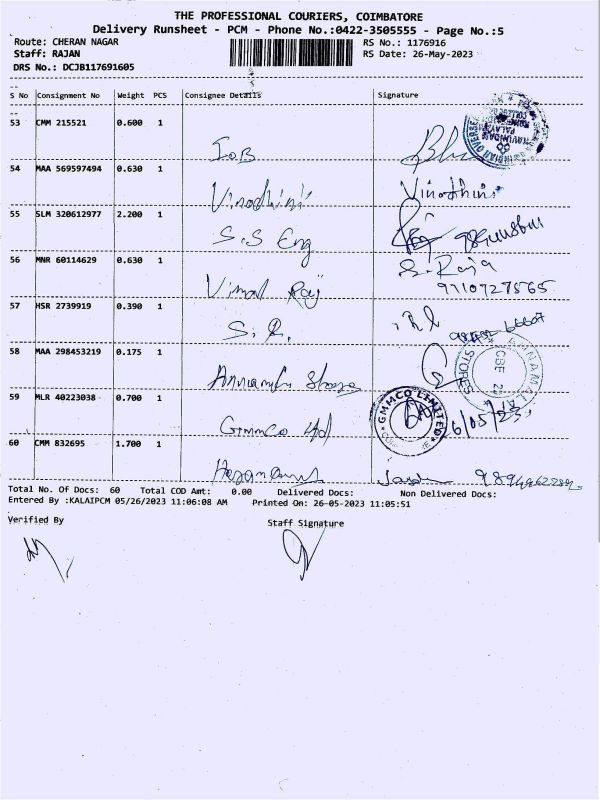 THE PROFESSIONAL COURIERS, COIMBATORE
Delivery Runsheet - PCM - Phone No.:0422-3505555 - Page No.:5
Route: CHERAN NAGAR
RS No.: 1176916
Staff: RAJAN
RS Date: 26-May-2023
DRS No.: DCJB117691605
S No Consignment No Weight PCS Consignee Details Signature
53 CMM 215521 0.600 1
IOB
54 MAA 569597494 0.630 1
Vinodhini Vinodhini
55 SLM 320612977 2.200 1
S.S Eng
56 MNR 60114629 0.630 1
S. Raja
Vimal Raj 9710727565
57 HSR 2739919 0.390 1
S. R.
58 MAA 298453219 0.175 1
STORES CBE
59 MLR 40223038 0.700 1
GMMCO LIMITED
Gmmco Ltd
60 CMM 832695 1.700 1
Total No. Of Docs: 60 Total COD Amt: 0.00 Delivered Docs: Non Delivered Docs:
Entered By :KALAIPCM 05/26/2023 11:06:08 AM Printed On: 26-05-2023 11:05:51
Verified By Staff Signature